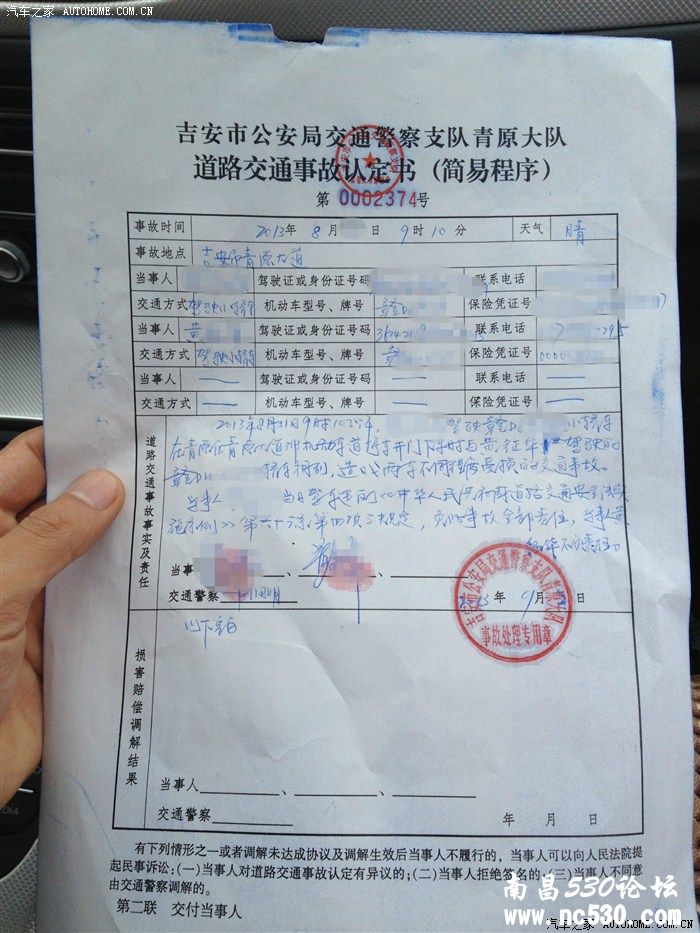 汽车之家 AUTOHOME.COM.CN
吉安市公安局交通警察支队青原大队
道路交通事故认定书（简易程序）
第 0002374号
事故时间 2013年 8 月 日 9 时 10 分 天气 晴
事故地点 吉安市青原大道
当事人 驾驶证或身份证号码 联系电话
交通方式 驾驶小轿车 机动车型号、牌号 赣D 保险凭证号
当事人 黄 驾驶证或身份证号码 联系电话
交通方式 驾驶小轿车 机动车型号、牌号 赣 保险凭证号
当事人 — 驾驶证或身份证号码 — 联系电话 —
交通方式 — 机动车型号、牌号 — 保险凭证号 —
道路交通事故事实及责任
2013年8月31日9时10分许， 驾驶赣D 小轿车
在青原区青原大道 机动车道停车开门下车时与黄 驾驶的
赣D 轿车 造成两车不同程度受损的交通事故。
当事人 《中华人民共和国道路交通安全法
实施条例》第六十三条第四项之规定，负此事故全部责任，当事人黄
华不负责任。
当事 、 、 、
交通警察 2013 年 9 月
以下空白
损害赔偿调解结果
当事人 、 、
交通警察 年 月 日
事故处理专用章
有下列情形之一或者调解未达成协议及调解生效后当事人不履行的，当事人可以向人民法院提
起民事诉讼:(一)当事人对道路交通事故认定有异议的;(二)当事人拒绝签名的;(三)当事人不同意
由交通警察调解的。
第二联 交付当事人
南昌530论坛
www.nc530.com
汽车之家 AUTOHOME.COM.CN